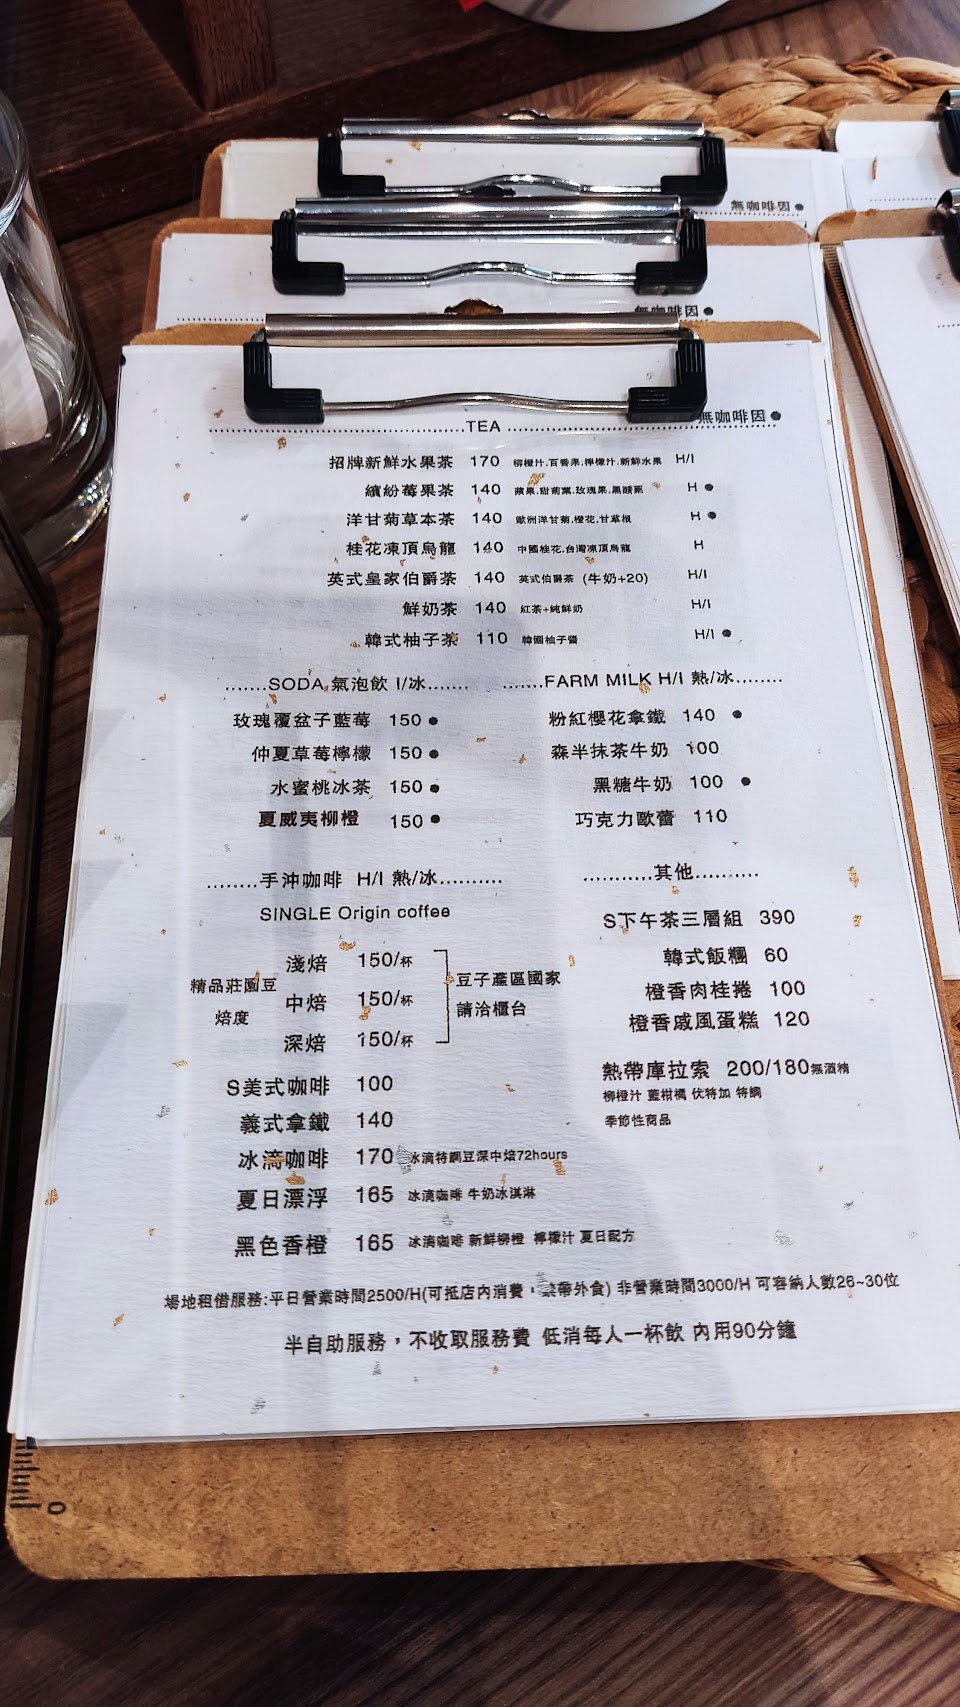 無咖啡因●
無咖啡因●
TEA 無咖啡因●
招牌新鮮水果茶 170 柳橙汁.百香果.檸檬汁.新鮮水果 H/I
繽紛莓果茶 140 蘋果.甜菊葉.玫瑰果.黑醋栗 H ●
洋甘菊草本茶 140 歐洲洋甘菊.橙花.甘草根 H ●
桂花凍頂烏龍 140 中國桂花.台灣凍頂烏龍 H
英式皇家伯爵茶 140 英式伯爵茶 (牛奶+20) H/I
鮮奶茶 140 紅茶+純鮮奶 H/I
韓式柚子茶 110 韓國柚子醬 H/I ●
SODA 氣泡飲 I/冰
玫瑰覆盆子藍莓 150 ●
仲夏草莓檸檬 150 ●
水蜜桃冰茶 150 ●
夏威夷柳橙 150 ●
FARM MILK H/I 熱/冰
粉紅櫻花拿鐵 140 ●
森半抹茶牛奶 100
黑糖牛奶 100 ●
巧克力歐蕾 110
手沖咖啡 H/I 熱/冰
SINGLE Origin coffee
精品莊園豆
焙度
淺焙 150/杯
中焙 150/杯
深焙 150/杯
豆子產區國家
請洽櫃台
S美式咖啡 100
義式拿鐵 140
冰滴咖啡 170 冰滴特調豆深中焙72hours
夏日漂浮 165 冰滴咖啡 牛奶冰淇淋
黑色香橙 165 冰滴咖啡 新鮮柳橙 檸檬汁 夏日配方
其他
S下午茶三層組 390
韓式飯糰 60
橙香肉桂捲 100
橙香戚風蛋糕 120
熱帶庫拉索 200/180無酒精
柳橙汁 藍柑橘 伏特加 特調
季節性商品
場地租借服務:平日營業時間2500/H(可抵店內消費，禁帶外食) 非營業時間3000/H 可容納人數26~30位
半自助服務，不收取服務費 低消每人一杯飲 內用90分鐘
0